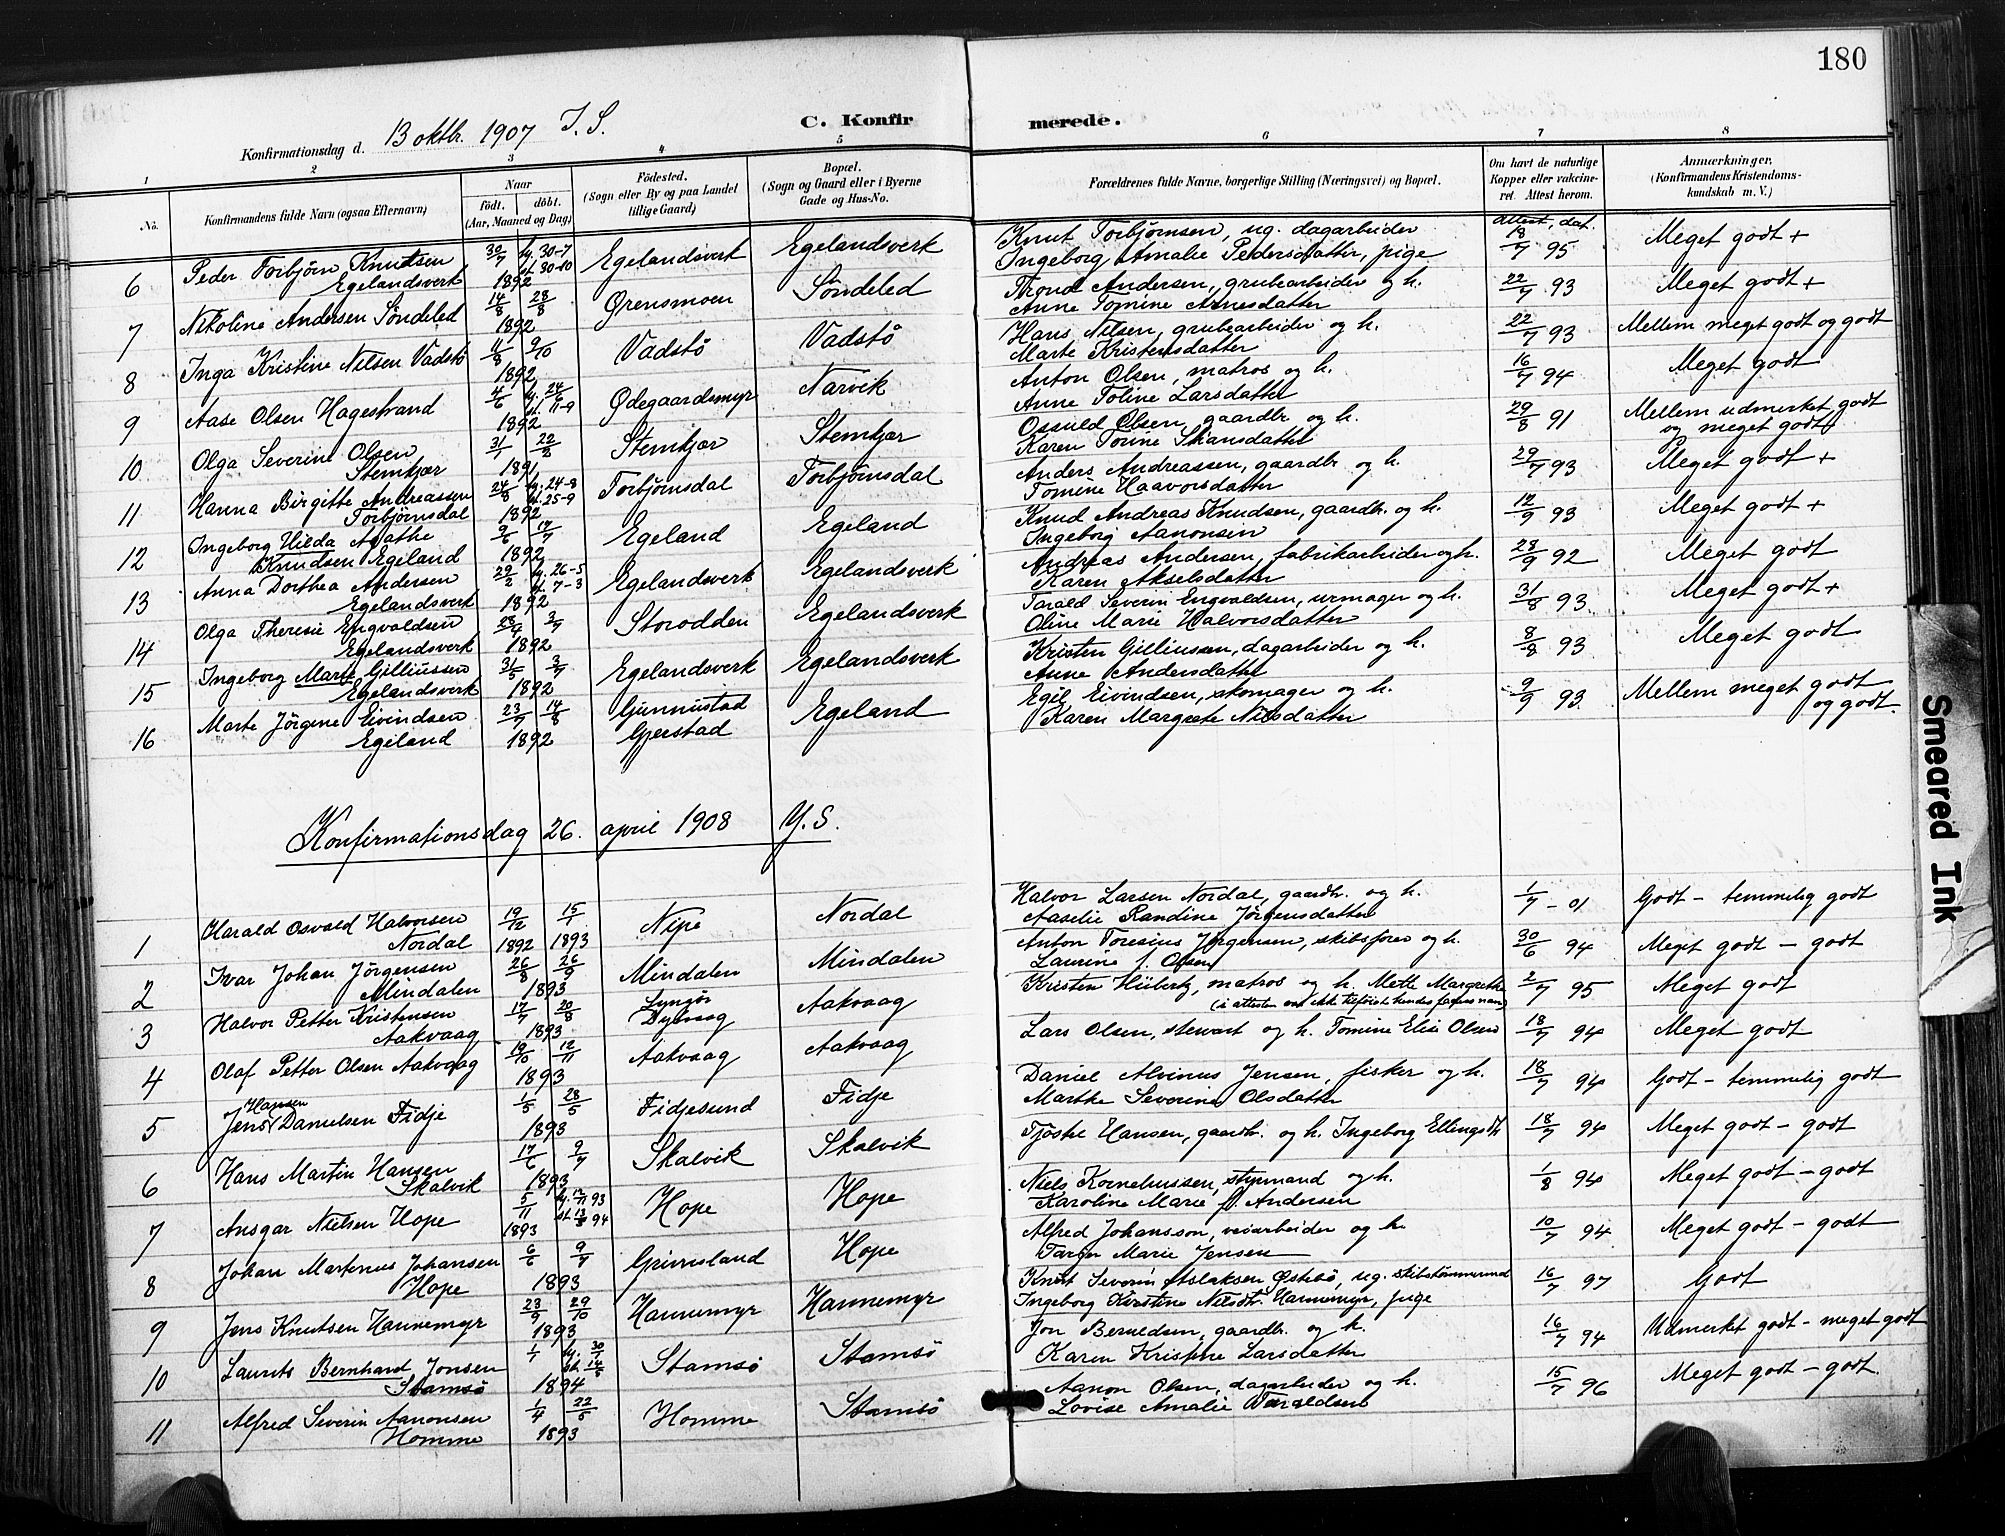 180
C. Konfirmerede.
Konfirmationsdag d. 13 oktbr. 1907 I. S.
1 2 3 4 5 6 7 8
No.
Konfirmandens fulde Navn (ogsaa Efternavn)
Naar födt. döbt. (Aar, Maaned og Dag)
Födested. (Sogn eller By og paa Landet tillige Gaard)
Bopæl. (Sogn og Gaard eller i Byerne Gade og Hus-No.
Forældrenes fulde Navne, borgerlige Stilling (Næringsvei) og Bopæl.
Om havt de naturlige Kopper eller vakcineret. Attest herom.
Anmærkninger. (Konfirmandens Kristendomskundskab m. V.)
attest, dat.
6 Peder Torbjörn Knutsen Egelandsverk 30/7 1892 hj. 30-7 st. 30-10 Egelandsverk Egelandsverk Knut Torbjörnsen, ug. dagarbeider Ingeborg Amalie Pedersdatter, pige 18/7 95 Meget godt +
7 Nikoline Andersen Söndeled 14/8 1892 28/8 Grensmoen Söndeled Trond Andersen, grubearbeider og h. Anne Tomine Arnesdatter 22/7 93 Meget godt +
8 Inga Kristine Nilsen Vadstö 11/8 1892 9/10 Vadstö Vadstö Hans Nilsen, grubearbeider og h. Marte Kristensdatter 22/7 93 Mellem meget godt og godt
9 Aase Olsen Hagestrand 4/6 1892 hj. 24/6 st. 11-9 Ødegaardsmyr Narvik Anton Olsen, matros og h. Anne Toline Larsdatter 16/7 94 Meget godt
10 Olga Severine Olsen Stemkjær 31/1 1891 22/8 Stemkjær Stemkjær Osvald Olsen, gaardbr. og h. Karen Torine 29/8 91 Mellem udmerket godt og meget godt
11 Hanna Birgitte Andreassen Torbjörnsdal 24/8 1892 hj. 24-8 st. 25-9 Torbjörnsdal Torbjörnsdal Anders Andreassen, gaardbr. og h. Tomine Haavorsdatter 29/7 93 Meget godt +
12 Ingeborg Hilda Agathe Knudsen Egeland 9/6 1892 17/7 Egeland Egeland Knud Andreas Knudsen, gaardbr. og h. Ingeborg Aanonsen 12/9 93 Meget godt +
13 Anna Dorthea Andersen Egelandsverk 29/2 1892 hj. 26-5 st. 7-3 Egelandsverk Egelandsverk Andreas Andersen, fabrikarbeider og h. Karen Akselsdatter 28/9 92 Meget godt
14 Olga Theresie Engvaldsen Egelandsverk 1892 3/7 Storodden Egelandsverk Tarald Severin Engvaldsen, urmager og h. Oline Marie Halvorsdatter 31/8 93 Meget godt +
15 Ingeborg Marte Gilliussen Egelandsverk 31/5 1892 3/7 Egelandsverk Egelandsverk Kristen Gilliussen, dagarbeider og h. Anne Andersdatter 8/8 93 Meget godt
16 Marte Jörgene Eivindsen Egeland 23/7 1892 14/8 Gunnustad Gjerstad Egeland Egil Eivindsen, skomager og h. Karen Margrete Nilsdatter 9/9 93. Mellem meget godt og godt.
Konfirmationsdag 26. april 1908 Y. S.
1 Harald Osvald Halvorsen Nordal 19/12 1892 15/1 1893 Nipe Nordal Halvor Larsen Nordal, gaardbr. og h. Aaselie Randine Jörgensdatter 1/7 - 01 Godt - temmelig godt
2 Ivar Johan Jörgensen Mindalen 26/8 1893 26/9 Mindalen Mindalen Anton Toresius Jörgensen, skibsförer og h. Laurine f. Olsen 30/6 94 Meget godt - godt
3 Halvor Petter Kristensen Aakvaag 17/7 1893 20/8 Lyngör Dybvaag Aakvaag Kristen Hüberts, matros og h. Mette Margrethe (i attesten er ikke tilföiet hendes farsnavn) 2/7 95 Meget godt
4 Olaf Petter Olsen Aakvaag 19/10 1893 12/11 Aakvaag Aakvaag Lars Olsen, stewart og h. Tomine Elise Olsen 18/7 94 Meget godt
5 Jens Hansen Danielsen Fidje 1/5 1893 28/5 Fidjesund Fidje Daniel Alvinus Jensen, fisker og h. Marthe Severine Olsdatter 18/7 94 Godt - temmelig godt
6 Hans Martin Hansen Skalvik 17/6 1893 9/7 Skalvik Skalvik Tjöstel Hansen, gaardbr. og h. Ingeborg Ellengsdtr. 18/7 94 Meget godt - godt
7 Ansgar Nielsen Hope 5/11 1893 hj. 12/11 93 st. 13/5 94 Hope Hope Niels Korneliussen, styrmand og h. Karoline Marie f. Andersen 1/8 94 Meget godt - godt
8 Johan Martinus Johansen Hope 6/6 1893 9/7 Grimsland Hope Alfred Johansson, veiarbeider og h. Marie Jensen 10/7 94 Meget godt - godt
9 Jens Knutsen Hannemyr 23/9 1893 29/10 Hannemyr Hannemyr Knut Severin Aslaksen Østebö, ug. skibstömmermd Ingeborg Kirstine Nilsdtr. Hannemyr, pige 16/7 97 Godt
10 Laurits Bernhard Jonsen Stamsö 1/7 1894 hj. 30/7 st. Stamsö Stamsö Jon Berneldsen, gaardbr. og h. Karen Kristine Larsdatter 16/7 94 Udmerket godt - meget godt
11 Alfred Severin Aanonsen Homme 1/4 1893 22/5 Homme Stamsö Aanon Olsen, dagarbeider og h. Lovise Amalie Taraldsen 15/7 96 Meget godt - godt.
Smeared Ink